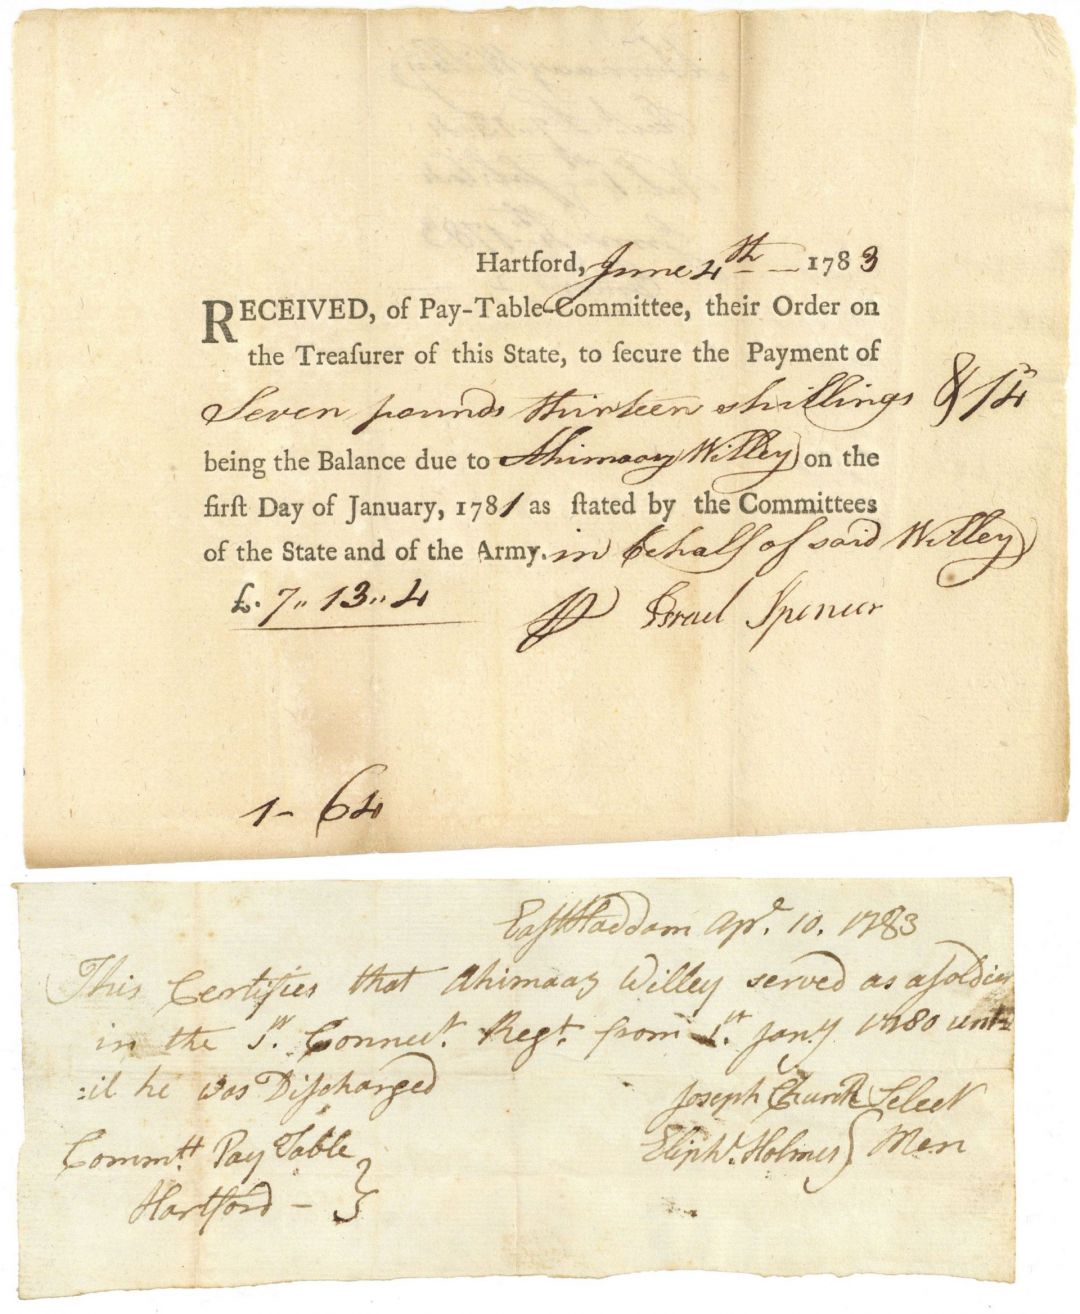 Hartford, June 4th 1783
RECEIVED, of Pay-Table-Committee, their Order on
the Treaſurer of this State, to ſecure the Payment of
Seven pounds thirteen shillings &
being the Balance due to Ahimaaz Willey on the
firſt Day of January, 1781 as ſtated by the Committees
of the State and of the Army. in behalf of said Willey
£. 7,, 13,, 4
Israel Spencer
1 - 64
Eaſt Haddam Apr. 10. 1783
This Certifies that Ahimaaz Willey served as a ſoldier
in the Connect. Regt. from 1st Jany 1780 unt
:il he was Diſcharged
Joseph Church Select
Eliphr. Holmes } Men
Commtt Pay Table
Hartford - }